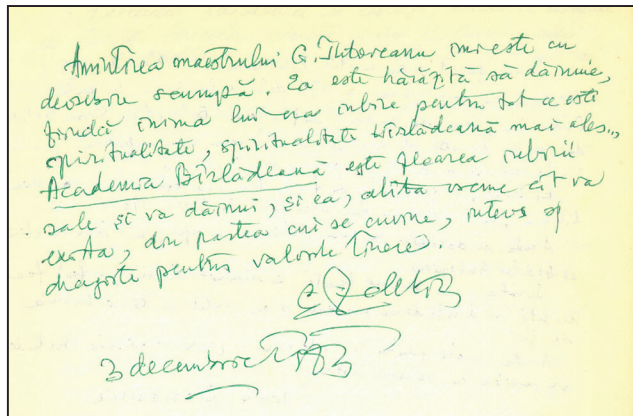 Amintirea maestrului G. Tutoveanu îmi este cu
deosebire scumpă. Ea este hărăzită să dăinuie,
fiindcă inima lui era iubire pentru tot ce este
spiritualitate, spiritualitate bîrlădeană mai ales..,
Academia Bîrlădeană este floarea iubirii
sale și va dăinui, și ea, atîta vreme cît va
exista, din partea cui se cuvine, interes și
dragoste pentru valorile tinere.
3 decembrie